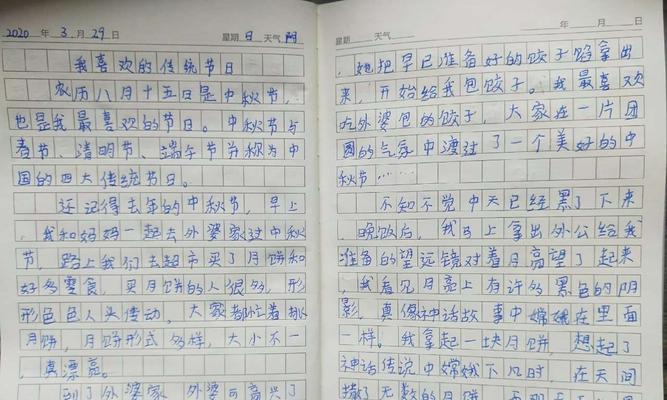 2020 年 3 月 29 日 星期 日 天气 阴
我喜欢的传统节日
农历八月十五日是中秋节,
也是我最喜欢的节日。中秋节与
春节、清明节、端午节并称为中
国的四大传统节日。
还记得去年的中秋节,早上
,我和妈妈一起去外婆家过中秋
节,路上我们去超市买了月饼和
好多零食,买月饼的人很多,形
形色色人头传动。大家都忙着挑
月饼,月饼形式多样,大小不一
,真漂亮。
到了外婆家,外婆可高兴了
星期 天气 年 月 日
,她把早已准备好的饺子馅拿出
来,开始给我包饺子。我最喜欢
吃外婆包的饺子,大家在一片团
圆的气氛中渡过了一个美好的中
秋节……
不知不觉中天已经黑了下来
,晚饭后,我马上拿出外公给我
准备的望远镜对着月亮望了起来
,我看见月亮上有许多黑色的阴
影,真像神话故事中嫦娥在里面
一样。我拿起一块月饼,想起了
神话传说中嫦娥下凡时,在天间
无数的月饼